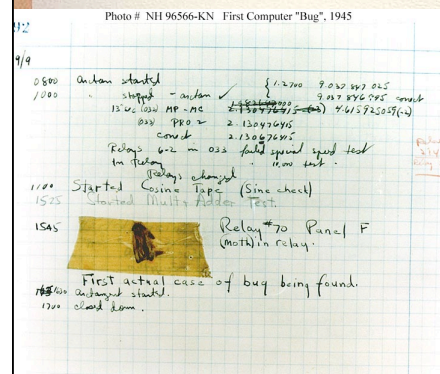 Photo # NH 96566-KN First Computer "Bug", 1945
92
9/9
0800 Antan started
1000 " stopped - antan ✓ { 1.2700 9.037 847 025
9.037 846 995 correct
13"UC (032) MP-MC 1.982647000 2.130476415 (-3) 4.615925059(-2)
(033) PRO 2 2.130476415
correct 2.130676415
Relays 6-2 in 033 failed special speed test
in relay " 11.000 test.
Relays changed
1100 Started Cosine Tape (Sine check)
1525 Started Mult+Adder Test.
1545 Relay #70 Panel F
(moth) in relay.
First actual case of bug being found.
1630 antangent started.
1700 closed down.
Relay